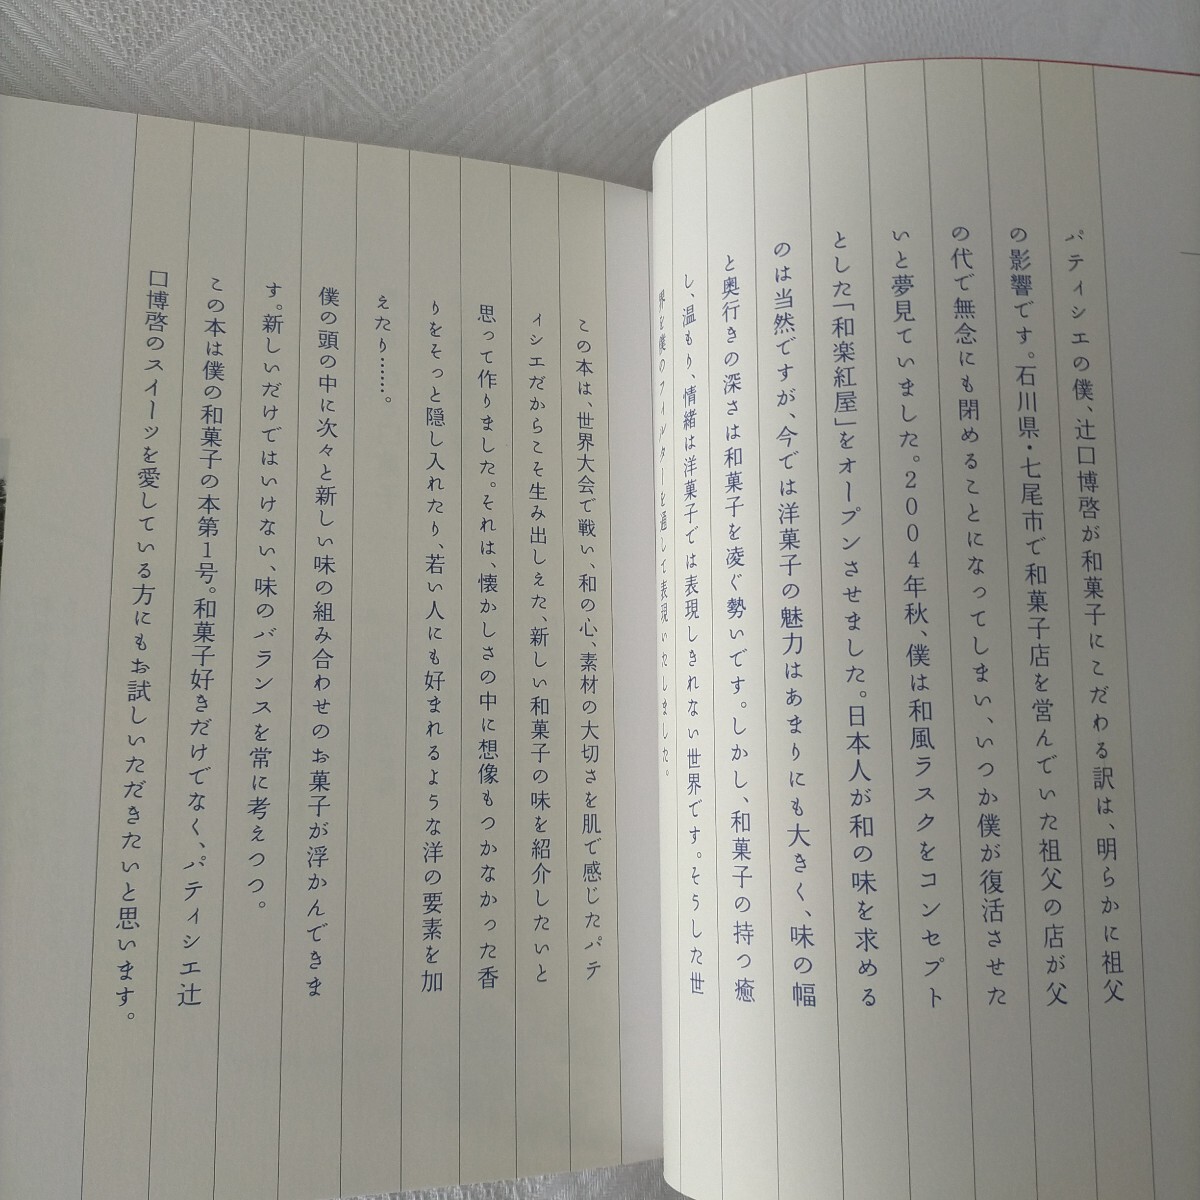 パティシエの僕、辻口博啓が和菓子にこだわる訳は、明らかに祖父
の影響です。石川県・七尾市で和菓子店を営んでいた祖父の店が父
の代で無念にも閉めることになってしまい、いつか僕が復活させた
いと夢見ていました。2004年秋、僕は和風ラスクをコンセプト
とした「和楽紅屋」をオープンさせました。日本人が和の味を求める
のは当然ですが、今では洋菓子の魅力はあまりにも大きく、味の幅
と奥行きの深さは和菓子を凌ぐ勢いです。しかし、和菓子の持つ癒
し、温もり、情緒は洋菓子では表現しきれない世界です。そうした世
界を僕のフィルターを通して表現いたしました。
この本は、世界大会で戦い、和の心、素材の大切さを肌で感じたパテ
ィシエだからこそ生み出しえた、新しい和菓子の味を紹介したいと
思って作りました。それは、懐かしさの中に想像もつかなかった香
りをそっと隠し入れたり、若い人にも好まれるような洋の要素を加
えたり……。
僕の頭の中に次々と新しい味の組み合わせのお菓子が浮かんできま
す。新しいだけではいけない、味のバランスを常に考えつつ。
この本は僕の和菓子の本第1号。和菓子好きだけでなく、パティシエ辻
口博啓のスイーツを愛している方にもお試しいただきたいと思います。